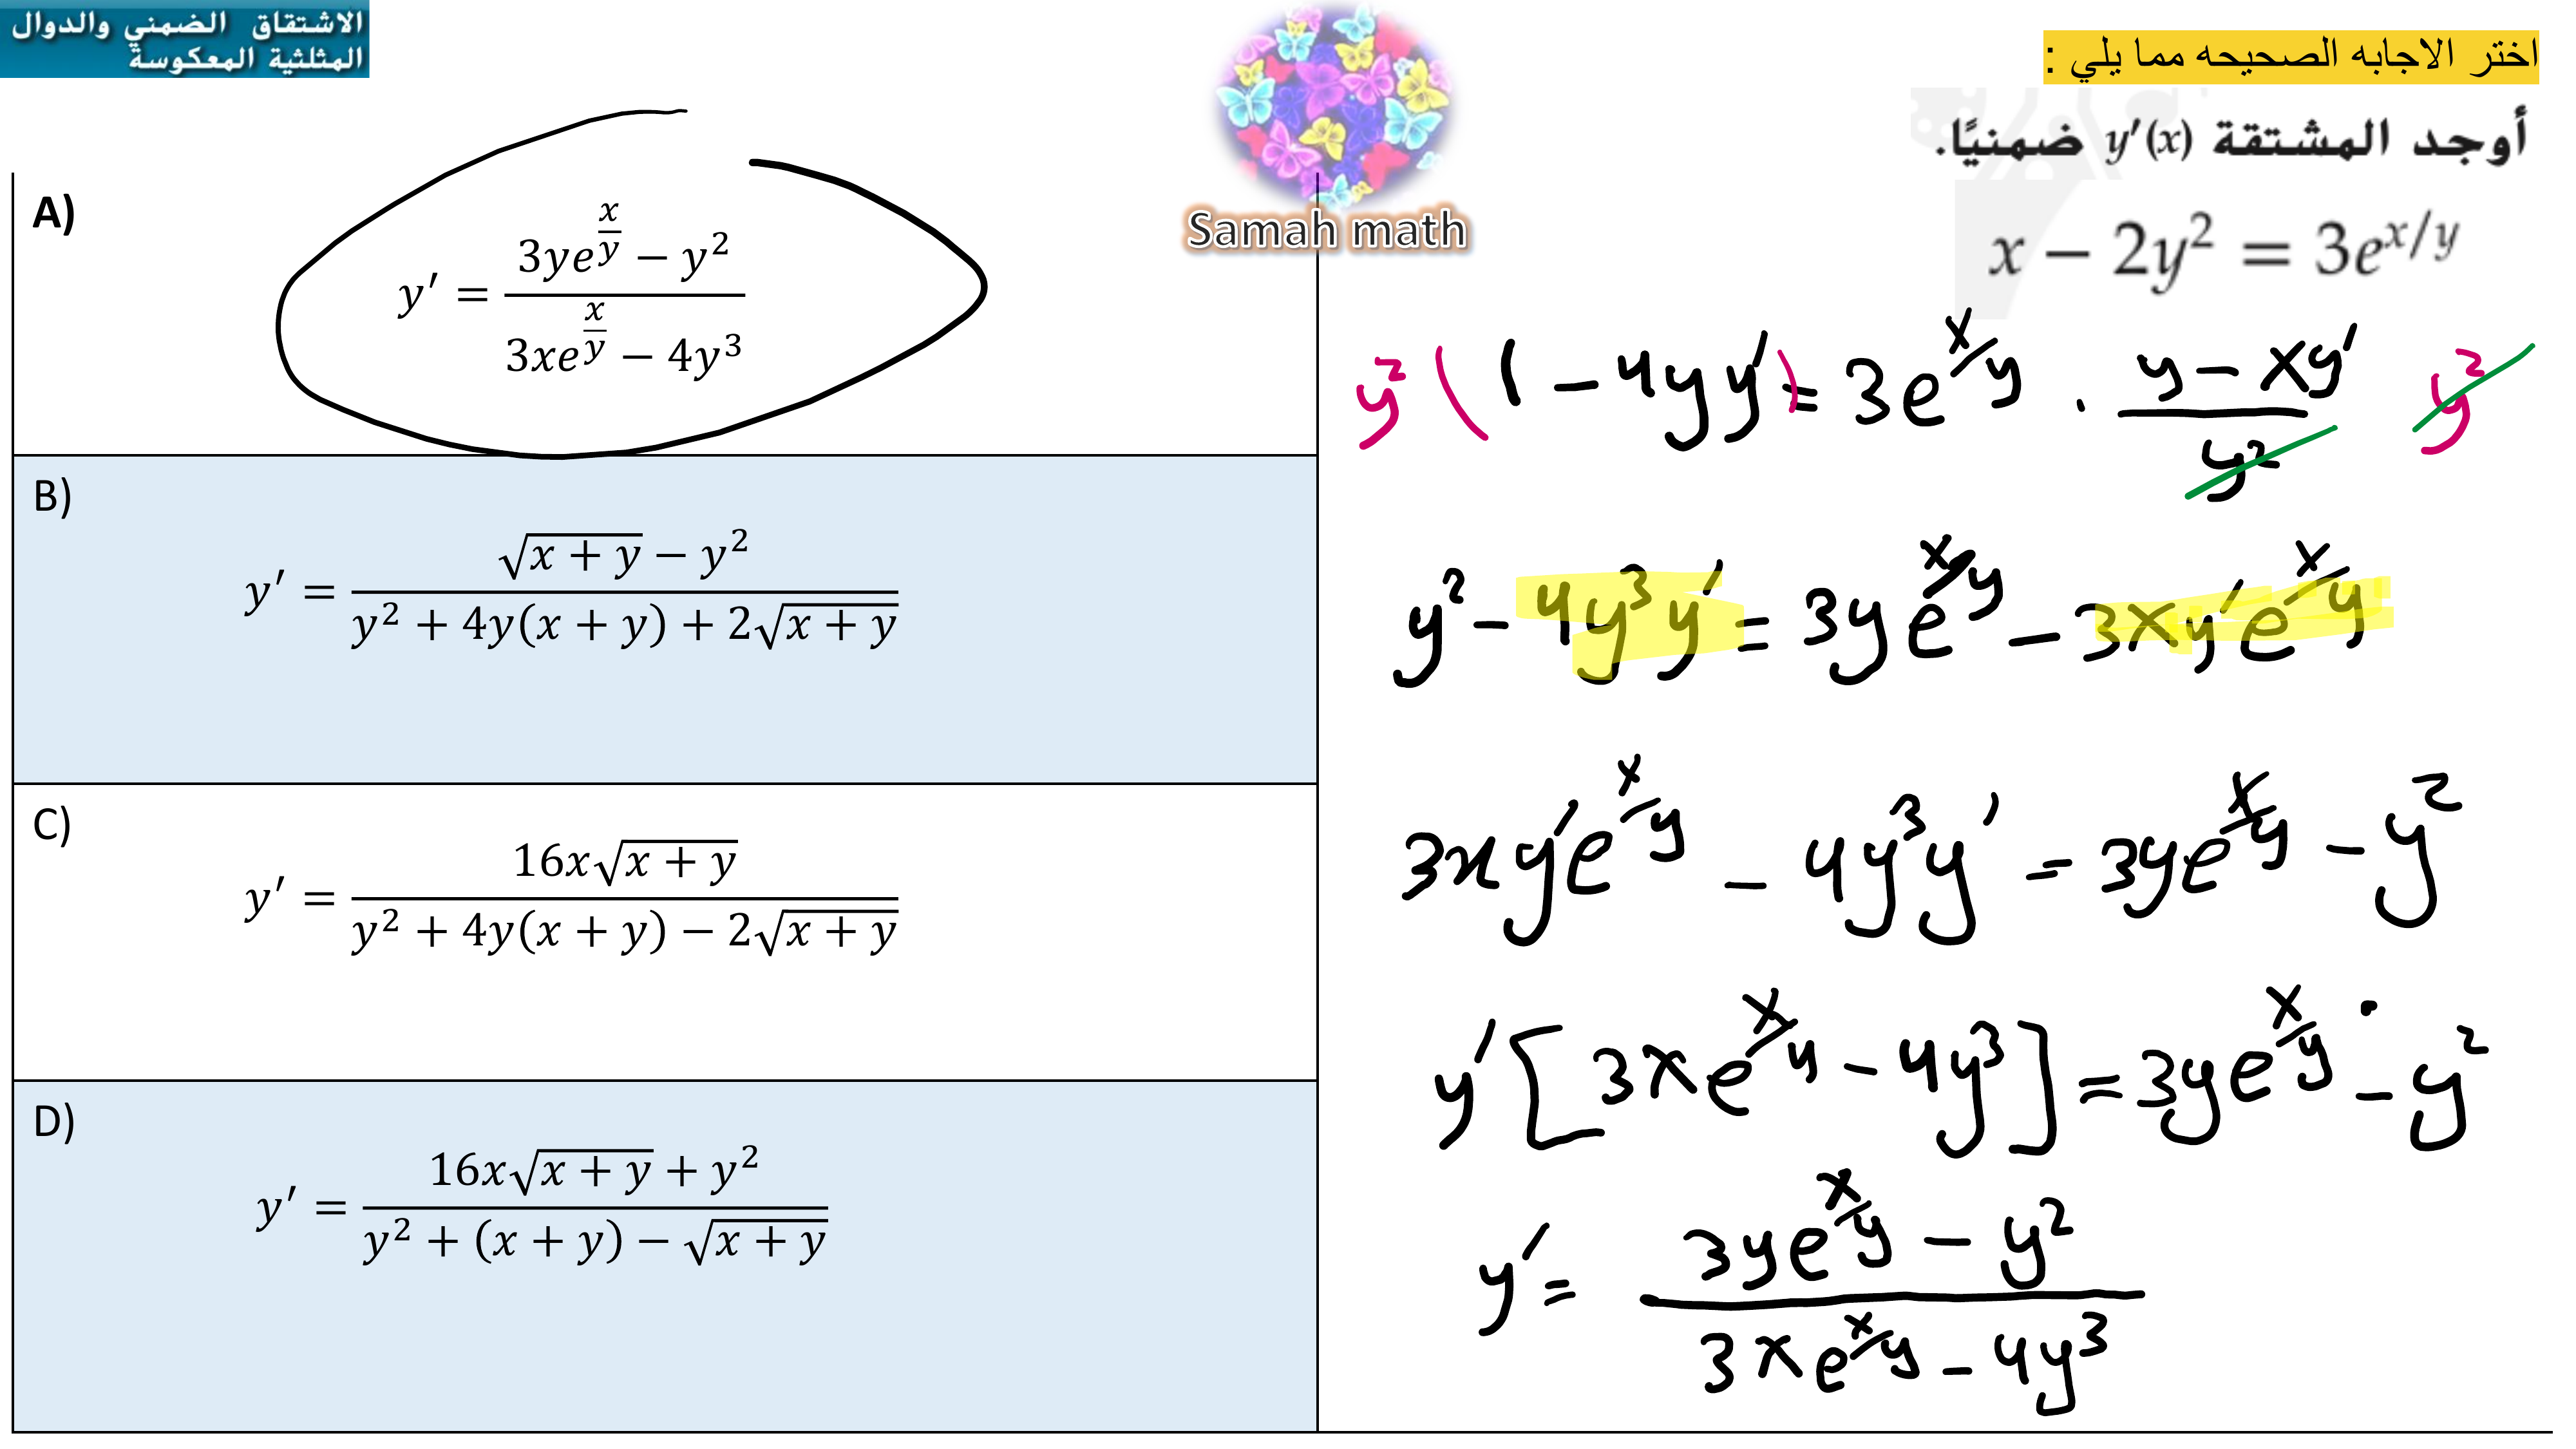 الاشتقاق الضمني والدوال
المثلثية المعكوسة
Samah math
اختر الاجابه الصحيحه مما يلي :
أوجد المشتقة y′(x) ضمنيًا.
x − 2y² = 3e^{x/y}
A)
y′ = (3ye^{x/y} − y²) / (3xe^{x/y} − 4y³)
B)
y′ = (√(x + y) − y²) / (y² + 4y(x + y) + 2√(x + y))
C)
y′ = (16x√(x + y)) / (y² + 4y(x + y) − 2√(x + y))
D)
y′ = (16x√(x + y) + y²) / (y² + (x + y) − √(x + y))
y² (1 − 4yy′) = 3e^{x/y} · (y − xy′) / y² y²
y² − 4y³y′ = 3ye^{x/y} − 3xy′e^{x/y}
3xy′e^{x/y} − 4y³y′ = 3ye^{x/y} − y²
y′[3xe^{x/y} − 4y³] = 3ye^{x/y} − y²
y′ = (3ye^{x/y} − y²) / (3xe^{x/y} − 4y³)